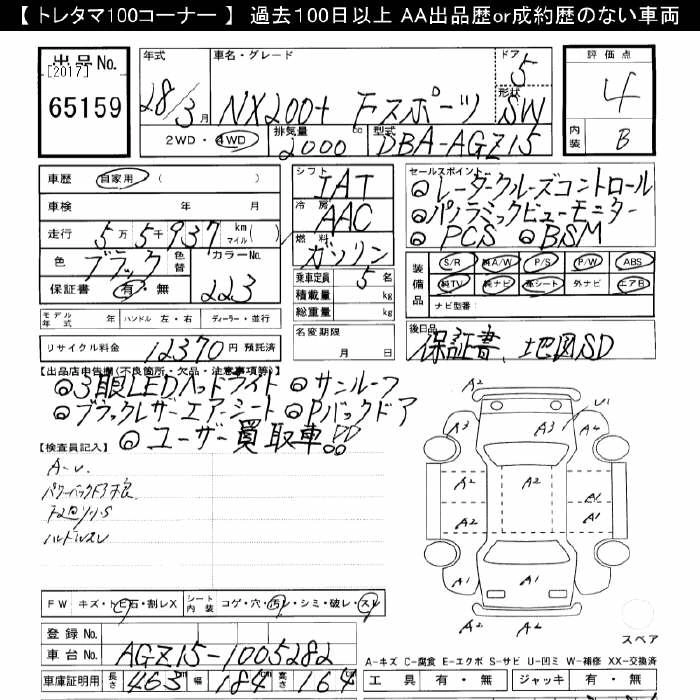 【 トレタマ100コーナー 】 過去100日以上 AA出品歴or成約歴のない車両
出品No.
[2017]
65159
年式
28/3月
車名・グレード
NX200t Fスポーツ
ドア 5
形状 SW
2WD・4WD
排気量 2000 cc
型式 DBA-AGZ15
評価点
4
内装 B
車歴 自家用 ( )
車検 年 月
走行 5万5千937 km マイル( )
色 ブラック 色替 カラーNo. 223
保証書 有・無
シフト IAT
冷房 AAC
燃料 ガソリン
乗車定員 5名
積載量 kg
総重量 kg
セールスポイント
◎レーダークルーズコントロール
◎パノラミックビューモニター
◎PCS ◎BSM
装備品
S/R 純A/W P/S P/W ABS
純TV 純ナビ 革シート 外ナビ エアB
ナビ型番:
モデル年式 年 ハンドル 左・右 ディーラー・並行
名変期限
月 日
リサイクル料金 12370円 預託済
後日品
保証書、地図SD
【出品店申告欄(不良箇所・欠品・注意事項等)】
◎3眼LEDヘッドライト ◎サンルーフ
◎ブラックレザーエアーシート ◎Pバックドア
◎ユーザー買取車!!
【検査員記入】
A-U.
パワーバックドア不良
ハンドルスレ
A2
A3 A3 U1
A2 A2 A2
A2 A2 A1 A1
A1 A2 A1
スペア
FW キズ・トビ石・割レX シート内装 コゲ・穴・汚レ・シミ・破レ・スレ
登録No.
車台No. AGZ15-1005282
車庫証明用 長さ 463 cm 幅 184 cm 高さ 164
A-キズ C-腐食 E-エクボ S-サビ U-凹ミ W-補修 XX-交換済
工具 有・無 ジャッキ 有・無